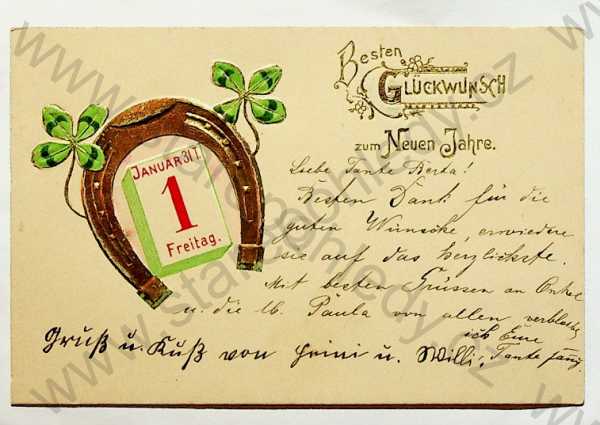 Besten
Glückwunsch
zum Neuen Jahre.
JANUAR 31 T.
1
Freitag.
Liebe Tante Berta!
Besten Dank für die
guten Wünsche, erwiedere
sie auf das herzlichste.
Mit besten Grüssen an Onkel
u. die lb. Paula von allen verbleibe
ich Eure
Tante
Gruß u. Kuß von Heini u. Willi.
www.staropohledy.cz